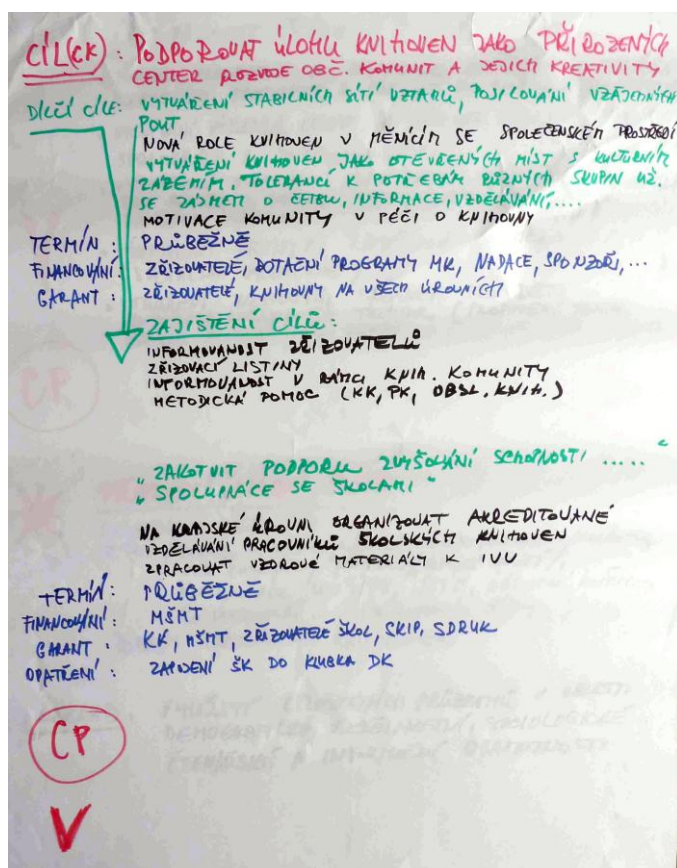 CÍL(CK): PODPOROVAT ÚLOHU KNIHOVEN JAKO PŘIROZENÝCH
CENTER ROZVOJE OBČ. KOMUNIT A JEJICH KREATIVITY
DÍLČÍ CÍLE: VYTVÁŘENÍ STABILNÍCH SÍTÍ VZTAHŮ, POSILOVÁNÍ VZÁJEMNÝCH
POUT
NOVÁ ROLE KNIHOVEN V MĚNÍCÍM SE SPOLEČENSKÉM PROSTŘEDÍ
VYTVÁŘENÍ KNIHOVEN JAKO OTEVŘENÝCH MÍST S KULTURNÍM
ZÁZEMÍM, TOLERANCÍ K POTŘEBÁM RŮZNÝCH SKUPIN UŽ.
SE ZÁJMEM O ČETBU, INFORMACE, VZDĚLÁVÁNÍ,....
MOTIVACE KOMUNITY V PÉČI O KNIHOVNY
TERMÍN: PRŮBĚŽNĚ
FINANCOVÁNÍ: ZŘIZOVATELÉ, DOTAČNÍ PROGRAMY MK, NADACE, SPONZOŘI,...
GARANT: ZŘIZOVATELÉ, KNIHOVNY NA VŠECH ÚROVNÍCH
ZAJIŠTĚNÍ CÍLŮ:
INFORMOVANOST ZŘIZOVATELŮ
ZŘIZOVACÍ LISTINY
INFORMOVANOST V RÁMCI KNIH. KOMUNITY
METODICKÁ POMOC (KK, PK, OBSL. KNIH.)
"ZAKOTVIT PODPORU ZVYŠOVÁNÍ SCHOPNOSTI ....."
"SPOLUPRÁCE SE ŠKOLAMI"
NA KRAJSKÉ ÚROVNI ORGANIZOVAT AKREDITOVANÉ
VZDĚLÁVÁNÍ PRACOVNÍKŮ ŠKOLSKÝCH KNIHOVEN
ZPRACOVAT VZOROVÉ MATERIÁLY K IVU
TERMÍN: PRŮBĚŽNĚ
FINANCOVÁNÍ: MŠMT
GARANT: KK, MŠMT, ZŘIZOVATELÉ ŠKOL, SKIP, SDRUK
OPATŘENÍ: ZAPOJENÍ ŠK DO KLUBKA DK
CP
V